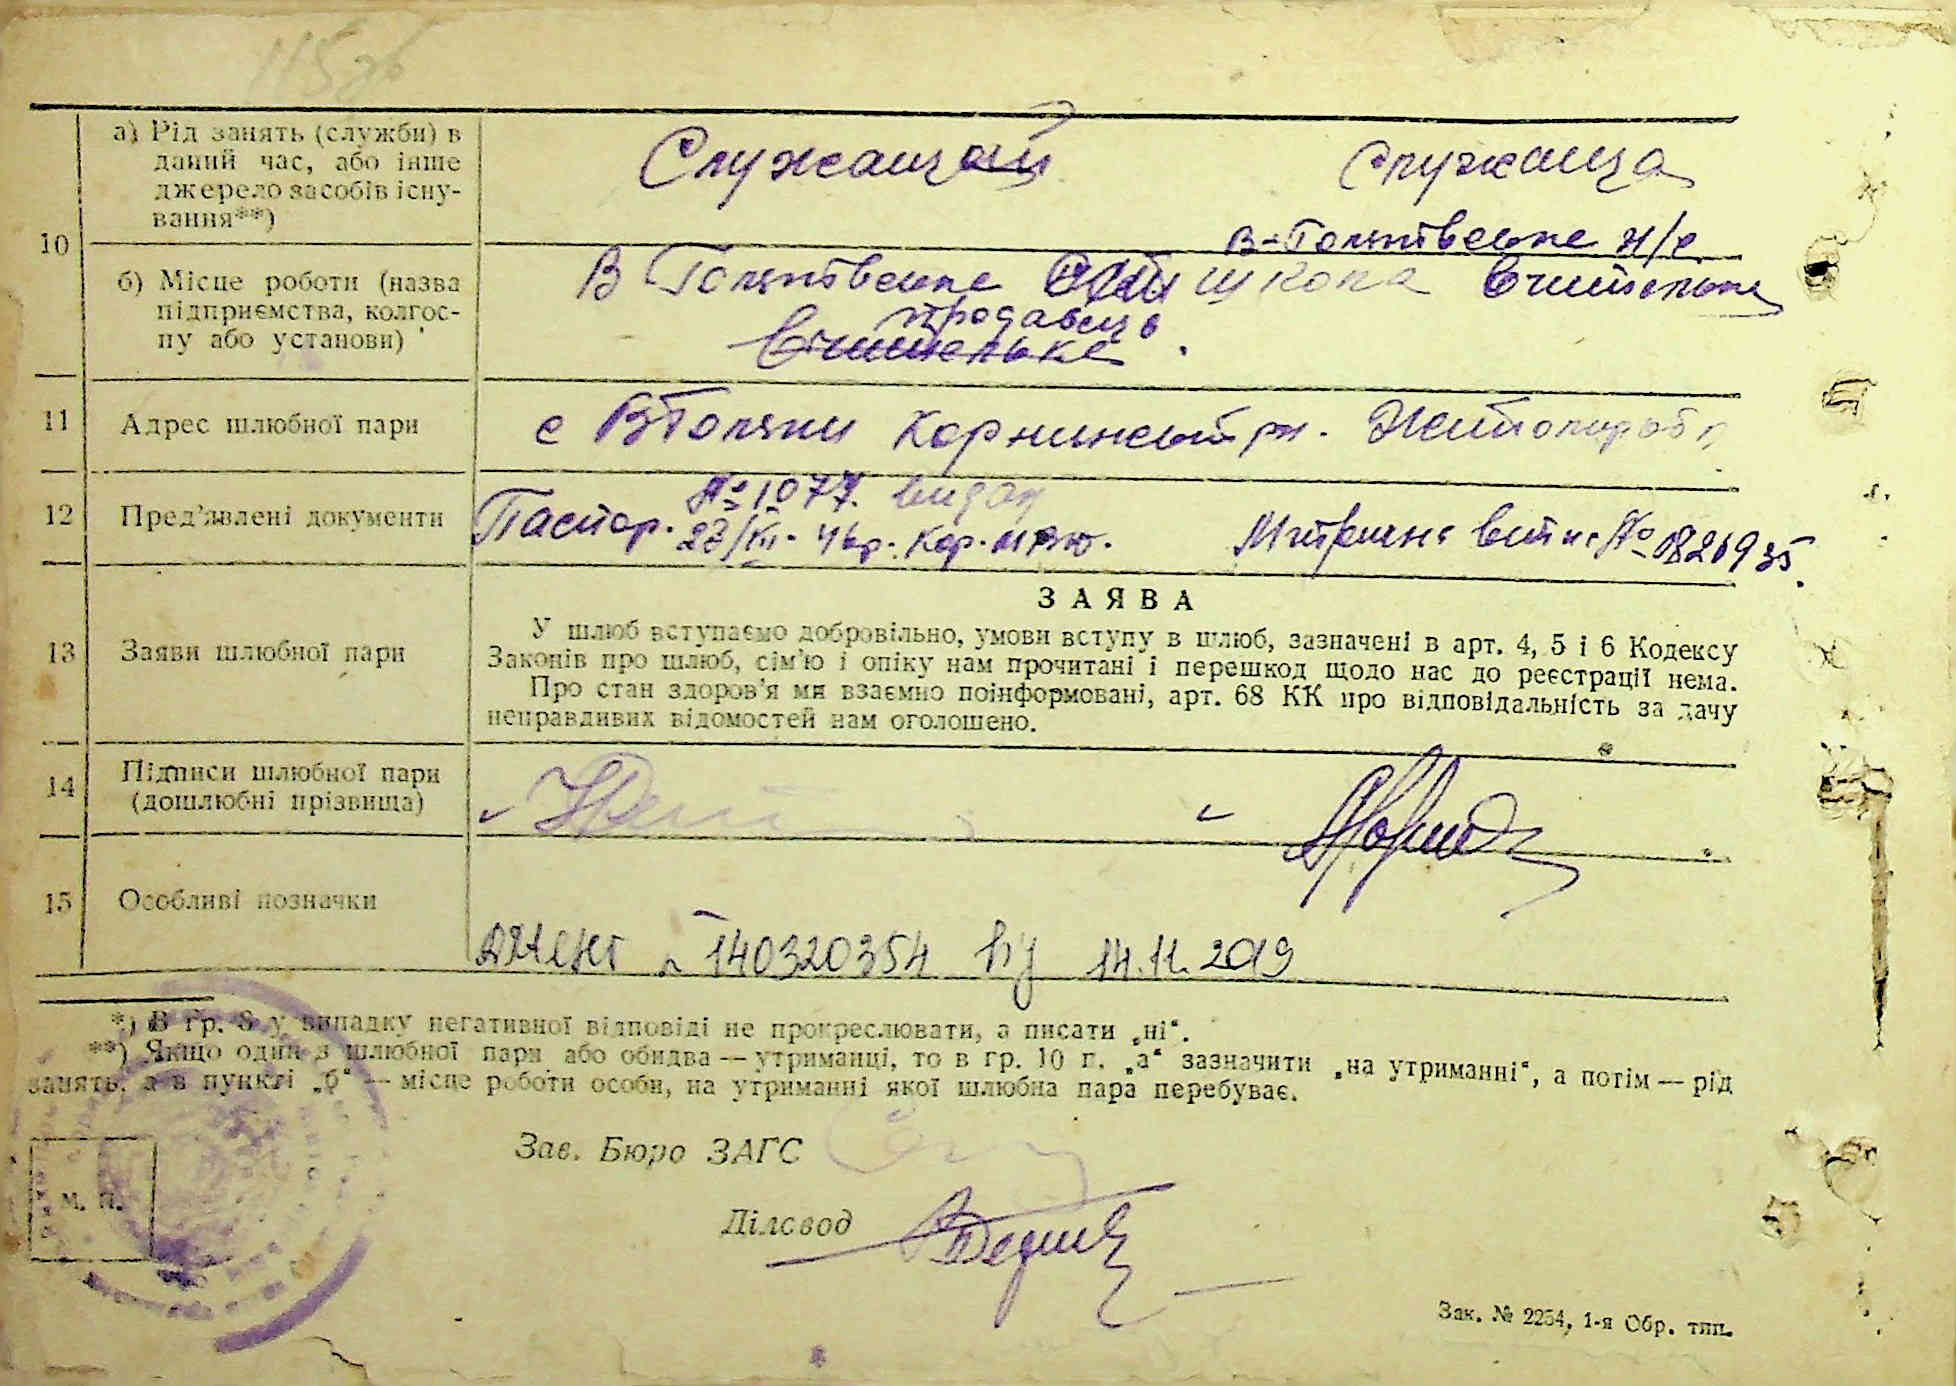 115 зв
10
а) Рід занять (служби) в
даний час, або інше
джерело засобів існу-
вання**)
Служащий
Служаща
б) Місце роботи (назва
підприємства, колгос-
пу або установи)
школа
продавець
Вчителька
11
Адрес шлюбної пари
с
12
Пред'явлені документи
Паспор. № 1077. видан
№ 0826935
13
Заяви шлюбної пари
ЗАЯВА
У шлюб вступаємо добровільно, умови вступу в шлюб, зазначені в арт. 4, 5 і 6 Кодексу
Законів про шлюб, сім'ю і опіку нам прочитані і перешкод щодо нас до реєстрації нема.
Про стан здоров'я ми взаємно поінформовані, арт. 68 КК про відповідальність за дачу
неправдивих відомостей нам оголошено.
14
Підписи шлюбної пари
(дошлюбні прізвища)
15
Особливі позначки
140320354 від 14.11.2019
*) В гр. 8 у випадку негативної відповіді не прокреслювати, а писати „ні“.
**) Якщо один з шлюбної пари або обидва — утриманці, то в гр. 10 п. „а“ зазначити „на утриманні“, а потім — рід
занять, а в пункті „б“ — місце роботи особи, на утриманні якої шлюбна пара перебуває.
Зав. Бюро ЗАГС
М. П.
Діловод
Зак. № 2254, 1-я Обр. тип.